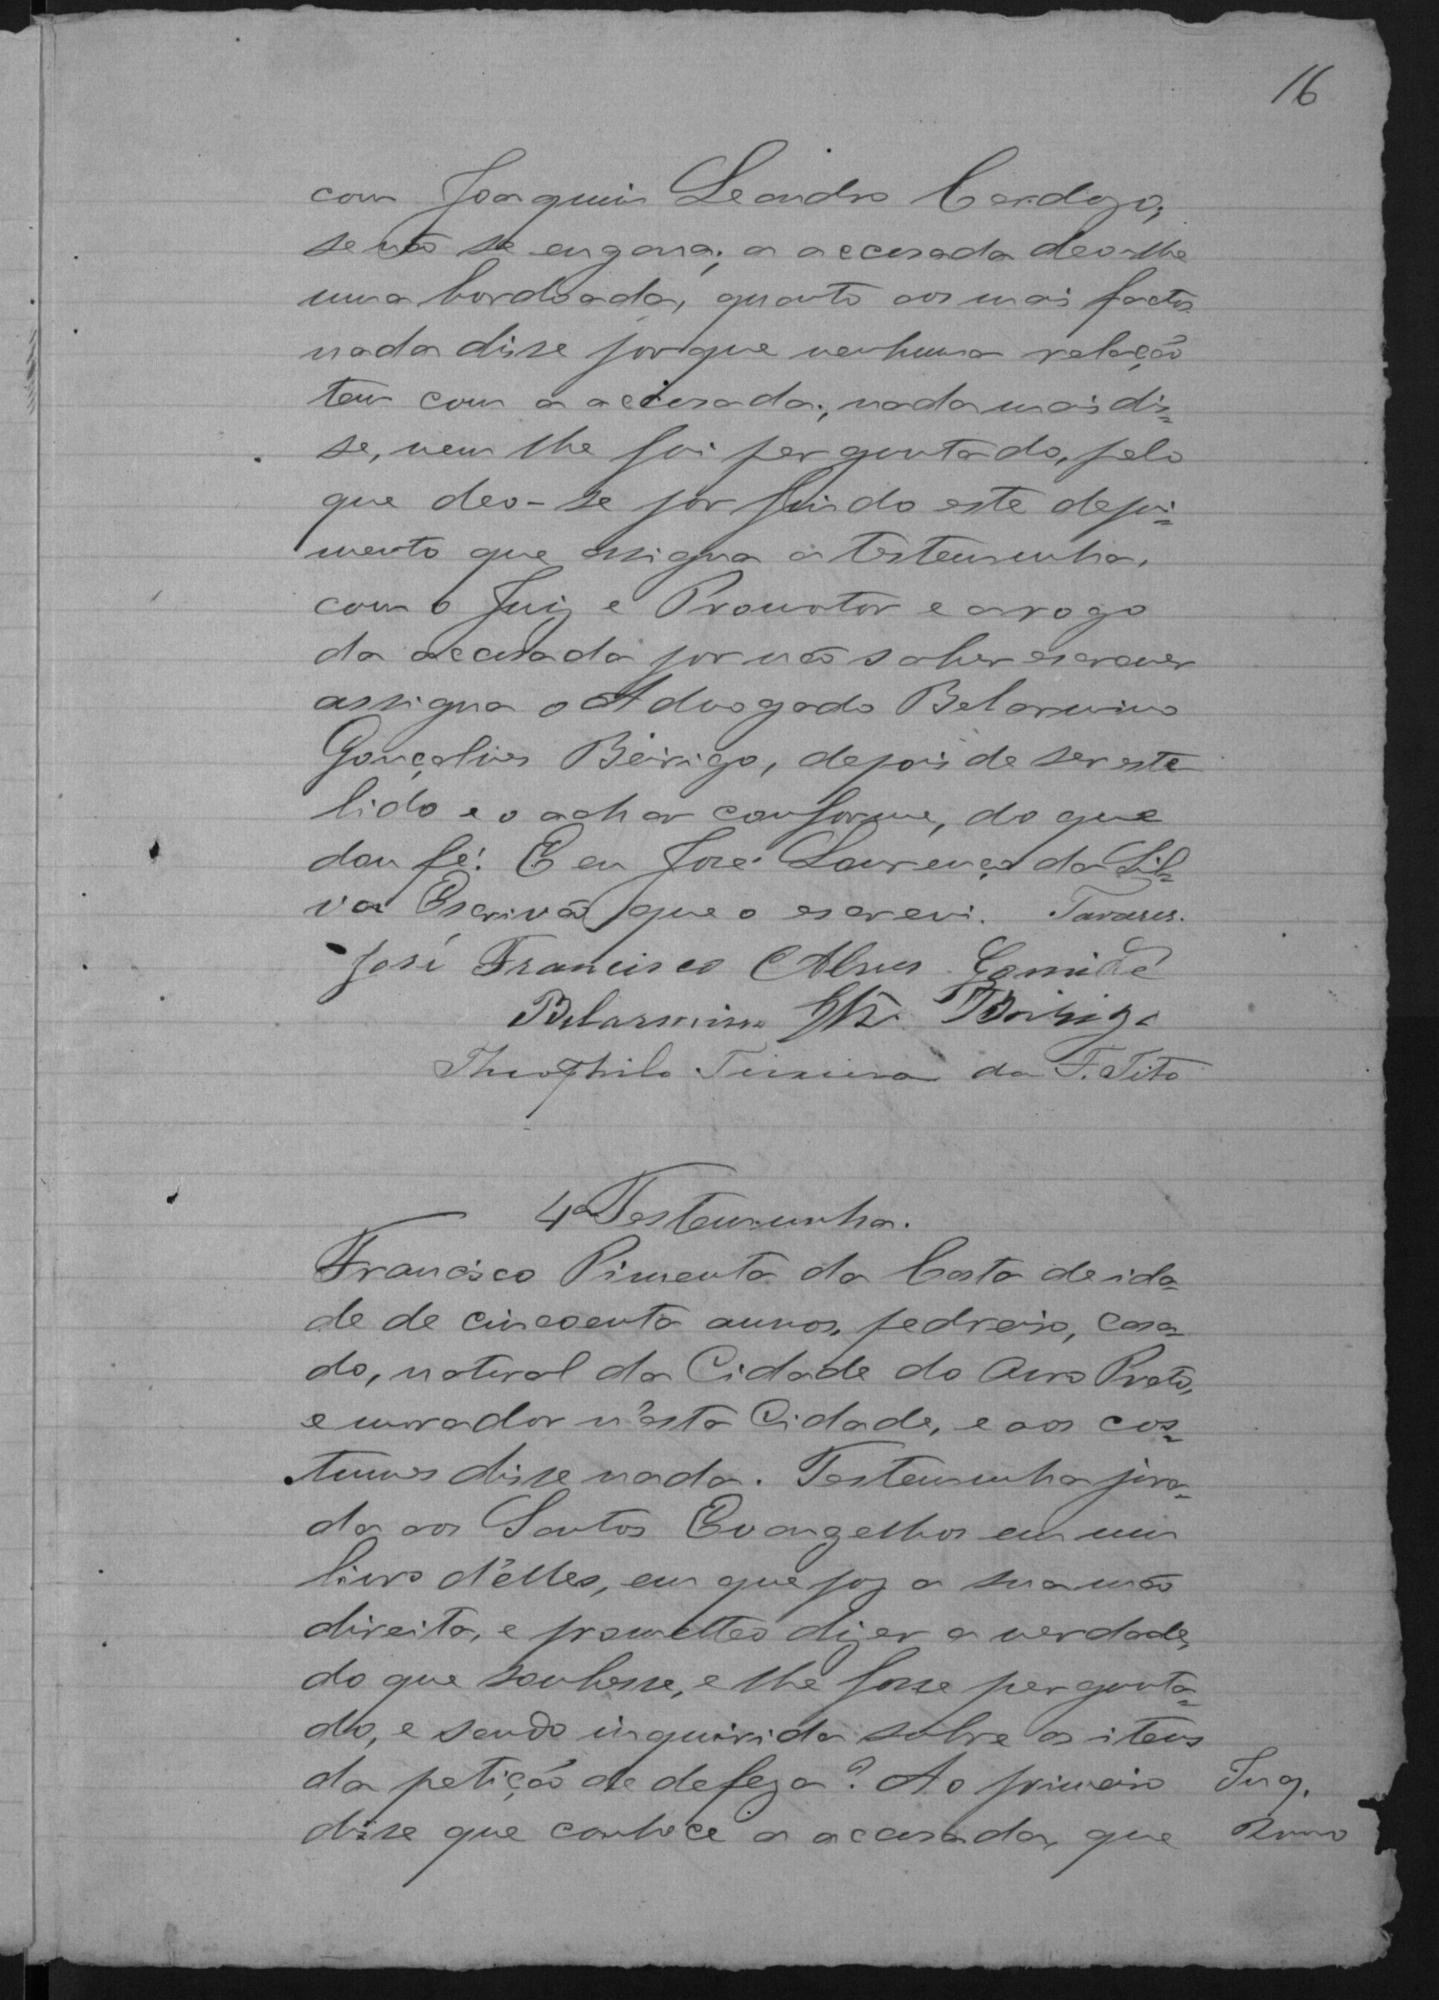 16
com Joaquim Leandro Cardozo,
se não se engana; a accusada deo-lhe
uma bordoada, quanto aos mais factos
nada disse porque nenhuma relação
tem com a accusada; nada mais dis=
se, nem lhe foi perguntado, pelo
que deo-se por findo este depoi=
mento que assigna a testemunha,
com o Juiz e Promotor e a rogo
da accusada por não saber escrever
assigna o Advogado Belarmino
Gonçalves Beirigo, depois de ser este
lido e o achar conforme, do que
dou fé. E eu José Lourenço da Sil=
va Escrivão que o escrevi. Tavares.
José Francisco Alves Gomide
Belarmino Beirigo
Theophilo Teixeira da F. Tito
4ª Testemunha.
Francisco Pimenta da Costa de ida
de de cincoenta annos, pedreiro, casa
do, natural da Cidade do Ouro Preto,
e morador n'esta Cidade, e aos cos=
tumes disse nada. Testemunha jura=
da aos Santos Evangelhos em um
livro d'elles, em que poz a sua mão
direita, e prometteo dizer a verdade,
do que soubesse, e lhe fosse pergunta=
do, e sendo inquirida sobre os itens
da petição de defeza? Ao primeiro
disse que conhece a accusada, que